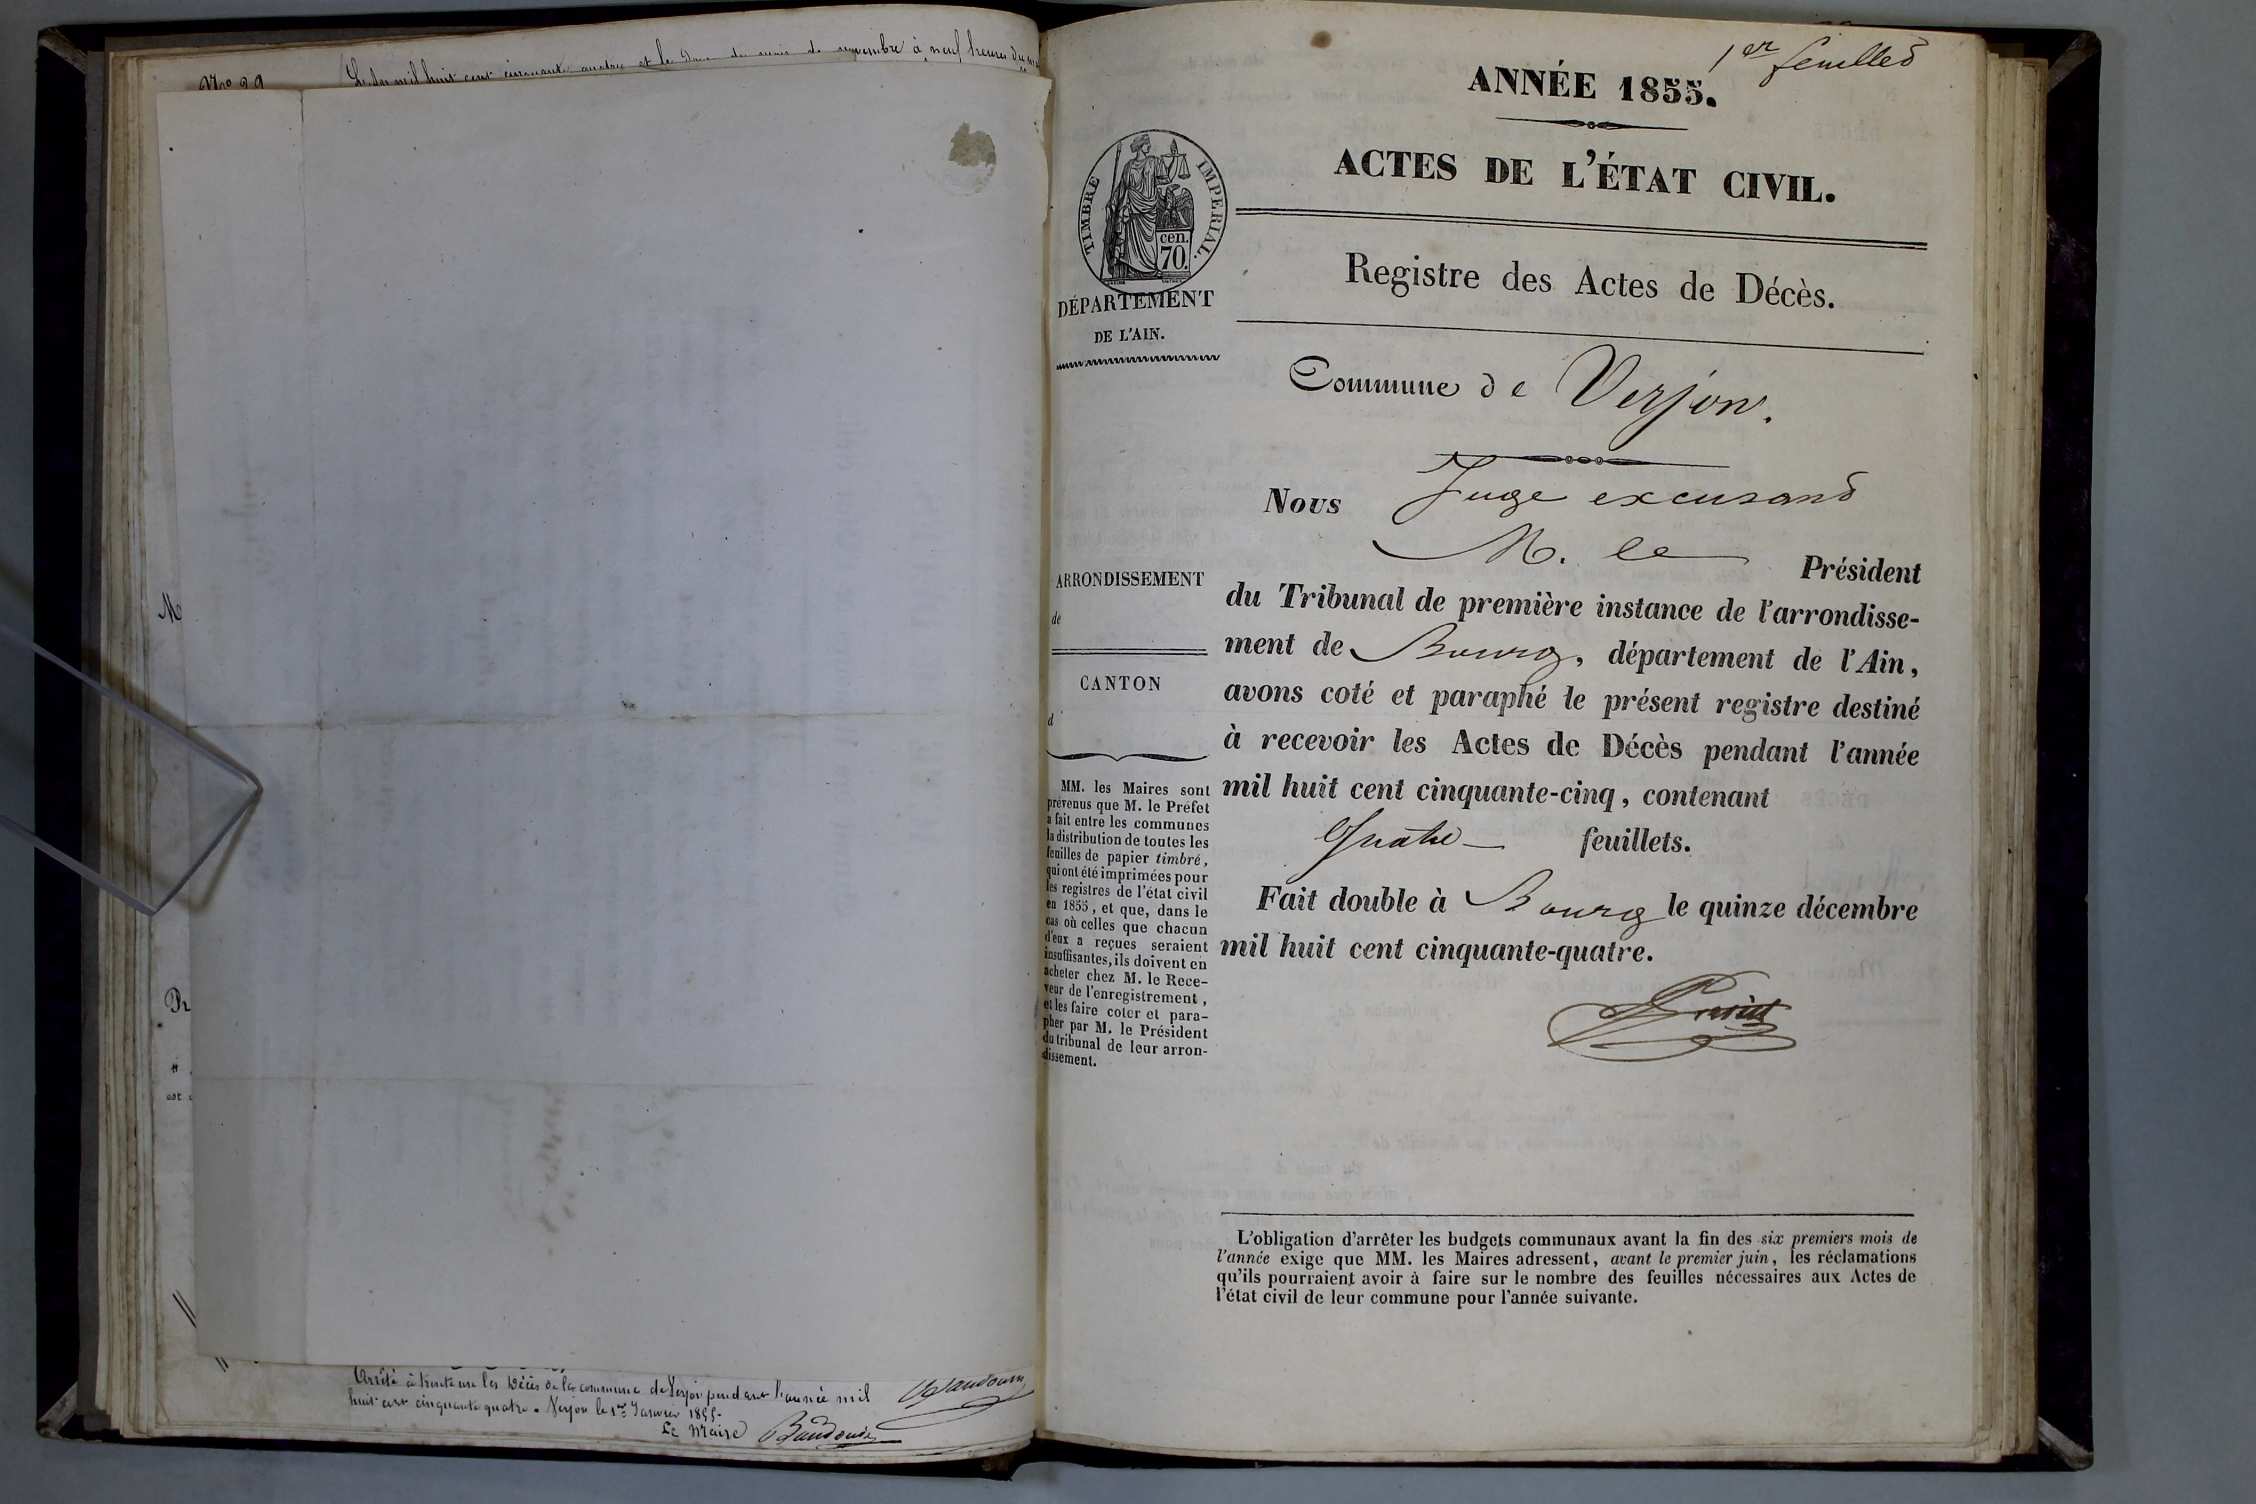 N° 29
L'an mil huit cent cinquante quatre et le douze du mois de novembre à neuf heures du
M
Pr
est
Arrêté à trente un les Décès de la commune de Verjon pendant l'année mil
huit cent cinquante quatre. Verjon le 1er Janvier 1855.
Le Maire Baudouin
1er feuillet
ANNÉE 1855.
ACTES DE L'ÉTAT CIVIL.
TIMBRE IMPERIAL.
cen.
70.
DÉPARTEMENT
DE L'AIN.
Registre des Actes de Décès.
Commune de Verjon.
Nous Juge excusant
M. le Président
du Tribunal de première instance de l'arrondisse-
ment de Bourg, département de l'Ain,
avons coté et paraphé le présent registre destiné
à recevoir les Actes de Décès pendant l'année
mil huit cent cinquante-cinq, contenant
Quatre feuillets.
Fait double à Bourg le quinze décembre
mil huit cent cinquante-quatre.
ARRONDISSEMENT
de
CANTON
d
MM. les Maires sont
prévenus que M. le Préfet
a fait entre les communes
la distribution de toutes les
feuilles de papier timbré,
qui ont été imprimées pour
les registres de l'état civil
en 1855, et que, dans le
cas où celles que chacun
d'eux a reçues seraient
insuffisantes, ils doivent en
acheter chez M. le Rece-
veur de l'enregistrement,
et les faire coter et para-
pher par M. le Président
du tribunal de leur arron-
dissement.
L'obligation d'arrêter les budgets communaux avant la fin des six premiers mois de
l'année exige que MM. les Maires adressent, avant le premier juin, les réclamations
qu'ils pourraient avoir à faire sur le nombre des feuilles nécessaires aux Actes de
l'état civil de leur commune pour l'année suivante.